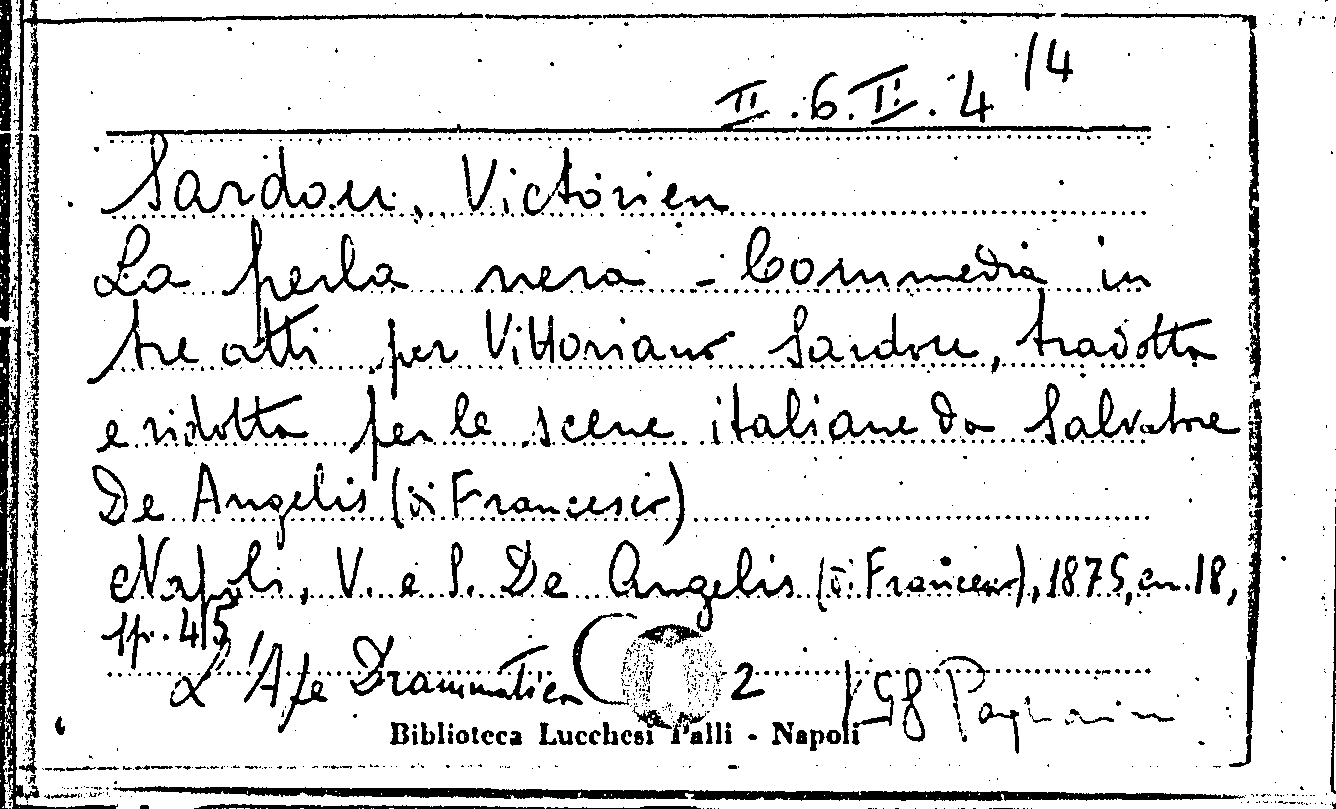 II.6.II.4 /4
Sardou, Victorien
La perla nera - Commedia in
tre atti per Vittoriano Sardou, tradotta
e ridotta per le scene italiane da Salvatore
De Angelis (di Francesco)
Napoli, V. e S. De Angelis (di Francesco), 1875, in 18,
pp. 45
L'Ape Drammatica 2
Biblioteca Lucchesi Palli - Napoli